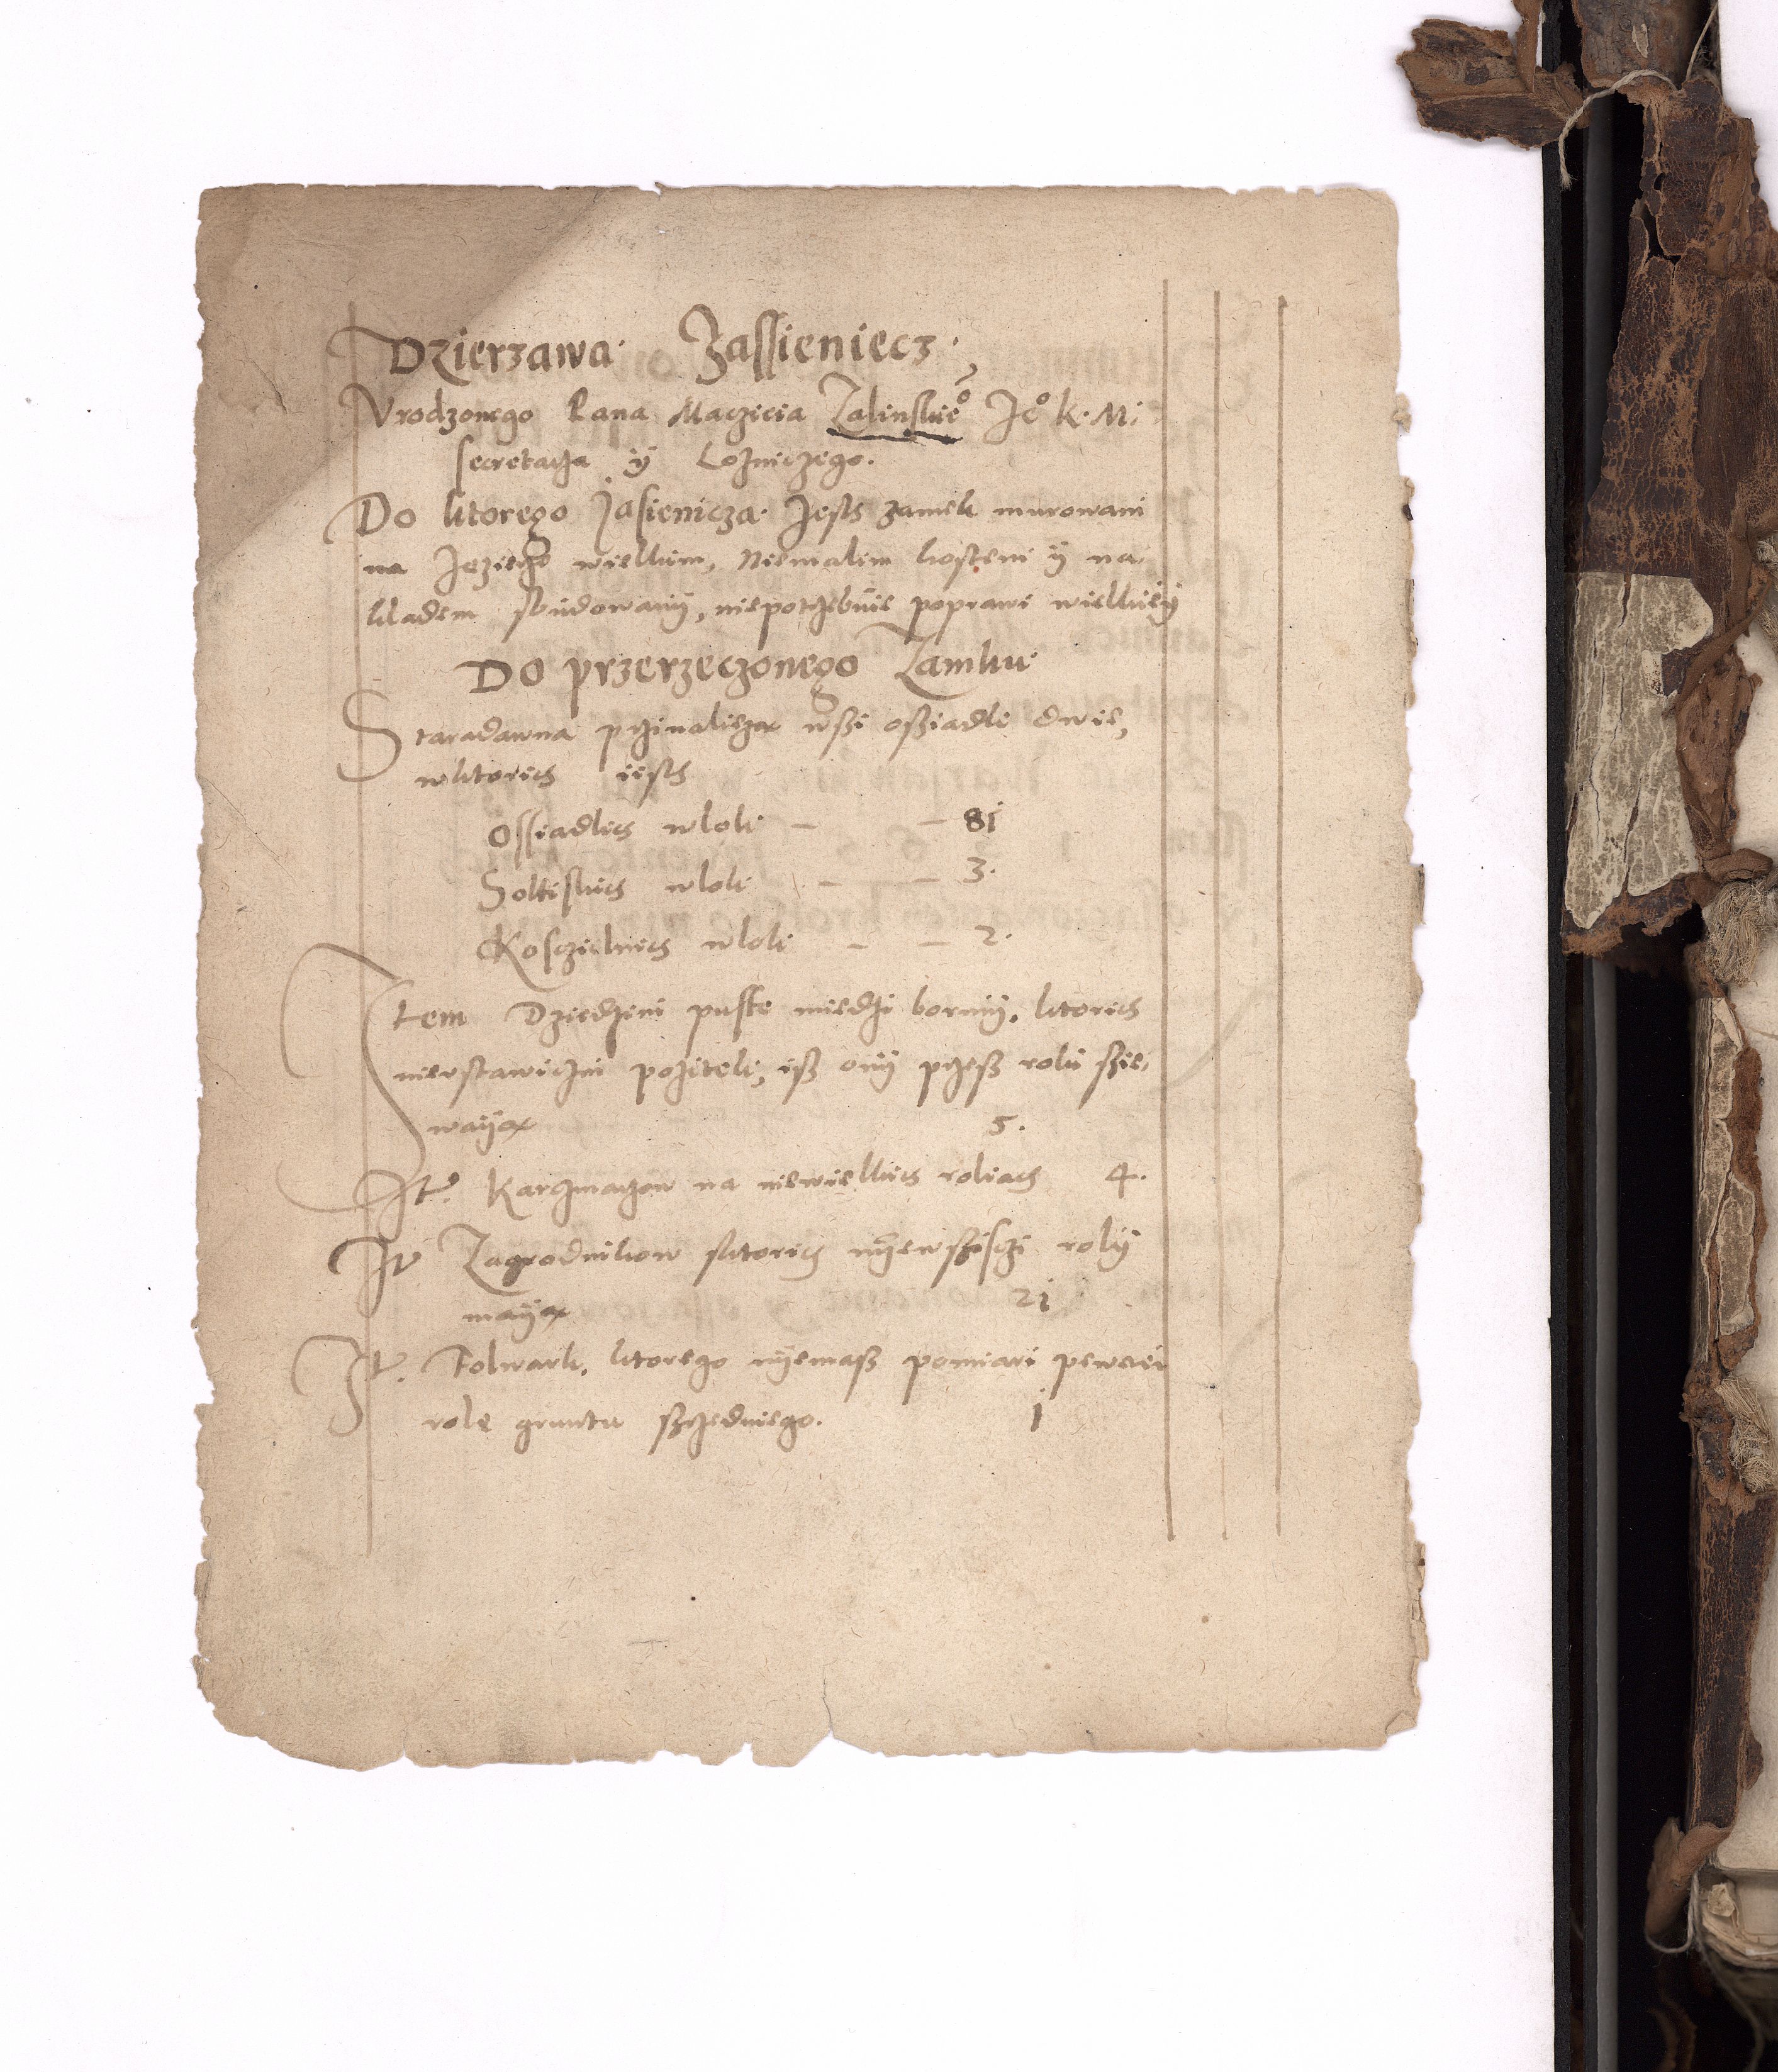 Dzierzawa Jassieniecz
Vrodzonego Pana Maczieia Zalinskieo Jeo K. M.
secretarza ÿ Lozniczego.
Do ktorego Jasienicza Jesth zamek murowani
na Jezierze wielkim, Niemalim kostem ÿ na
kladem sbudowanÿ, niepotrzebuie poprawi wielkieÿ
Do przerzeczonego Zamku
Staradawna przinalieza wssi ossiadle dwie,
wktorich iesth
Ossiadlich wlok – – 81
Soltiskich wlok – – 3.
Kosczielnich wlok – – 2.
Item Dziedzini puste miedzi bormÿ, ktorich
nieustawiczni pozitek, iss onÿ przess roku ssie
waÿa 5.
It. Karczmarzow na niewielkich roliach 4.
It Zagrodnikow sktorich nÿewssisczi rolÿ
maÿa 21
It. Folwark, ktorego nÿemass pomiari pewnei
role gruntu srzedniego. 1